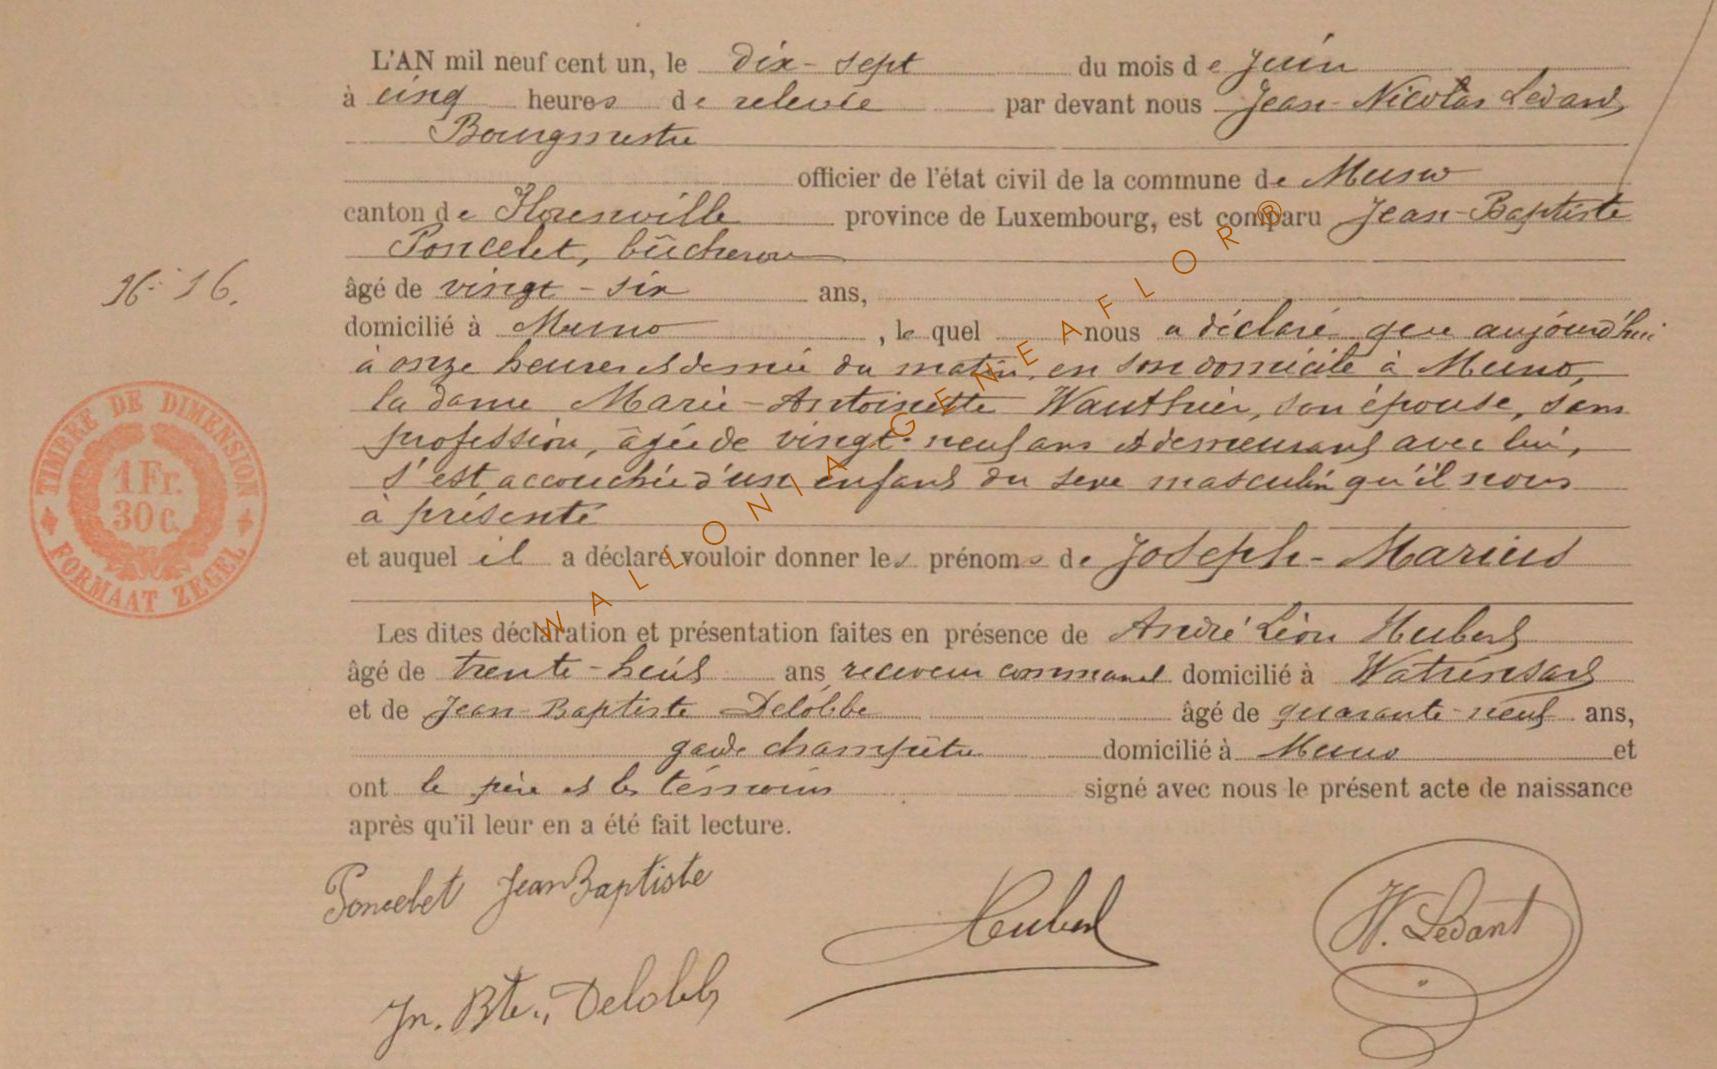 L'AN mil neuf cent un, le dix-sept du mois de Juin
à cinq heures de relevée par devant nous Jean-Nicolas Ledant,
Bourgmestre
officier de l'état civil de la commune de Muno
canton de Florenville province de Luxembourg, est comparu Jean-Baptiste
Poncelet, bûcheron
N° 16.
âgé de vingt-six ans,
domicilié à Muno, lequel nous a déclaré que aujourd'hui
à onze heures et demie du matin, en son domicile à Muno,
la dame Marie-Antoinette Wauthier, son épouse, sans
profession, âgée de vingt-neuf ans et demeurant avec lui,
s'est accouchée d'un enfant du sexe masculin qu'il nous
a présenté
et auquel il a déclaré vouloir donner les prénoms de Joseph-Marius
Les dites déclaration et présentation faites en présence de André Léon Hubert
âgé de trente-huit ans receveur communal domicilié à Watrinsart
et de Jean-Baptiste Delobbe âgé de quarante-neuf ans,
garde champêtre domicilié à Muno et
ont le père et les témoins signé avec nous le présent acte de naissance
après qu'il leur en a été fait lecture.
Poncelet Jean Baptiste
Hubert
N. Ledant
Jn. Bte. Delobbe
TIMBRE DE DIMENSION
1 Fr.
30 c.
FORMAAT ZEGEL
WALLONIA GENEAFLOR ®